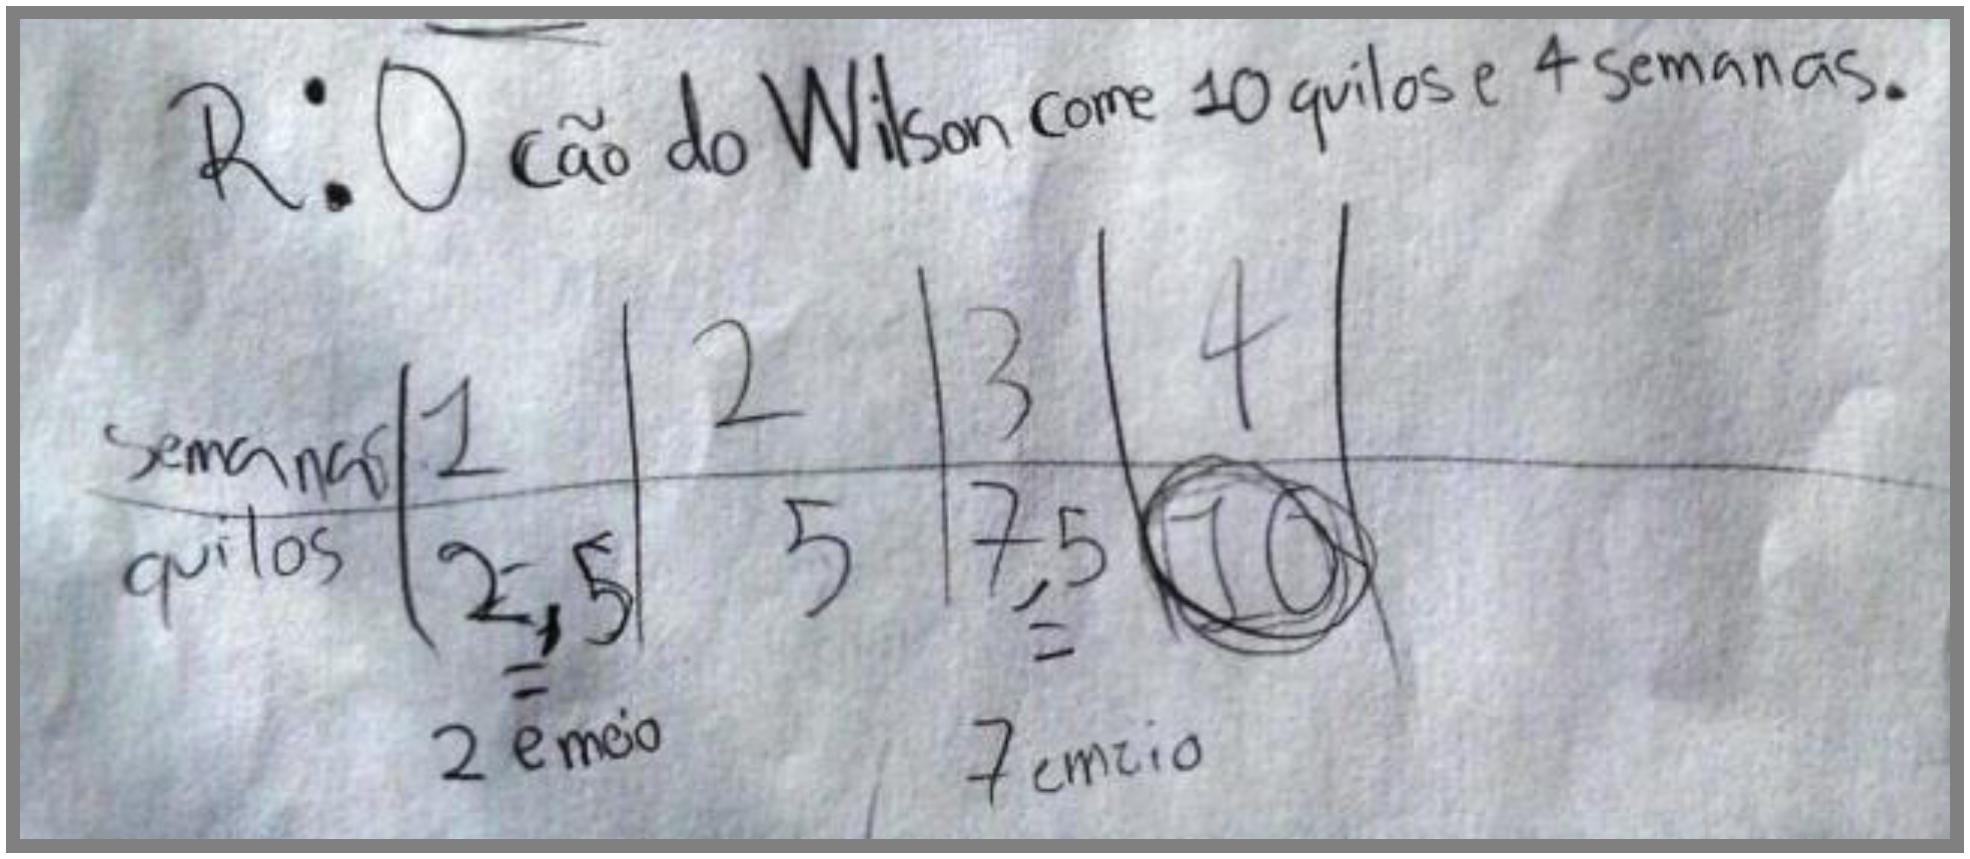 R: O cão do Wilson come 10 quilos e 4 semanas.
semanas 1 2 3 4
quilos 2,5 5 7,5 10
2 e meio 7 emeio